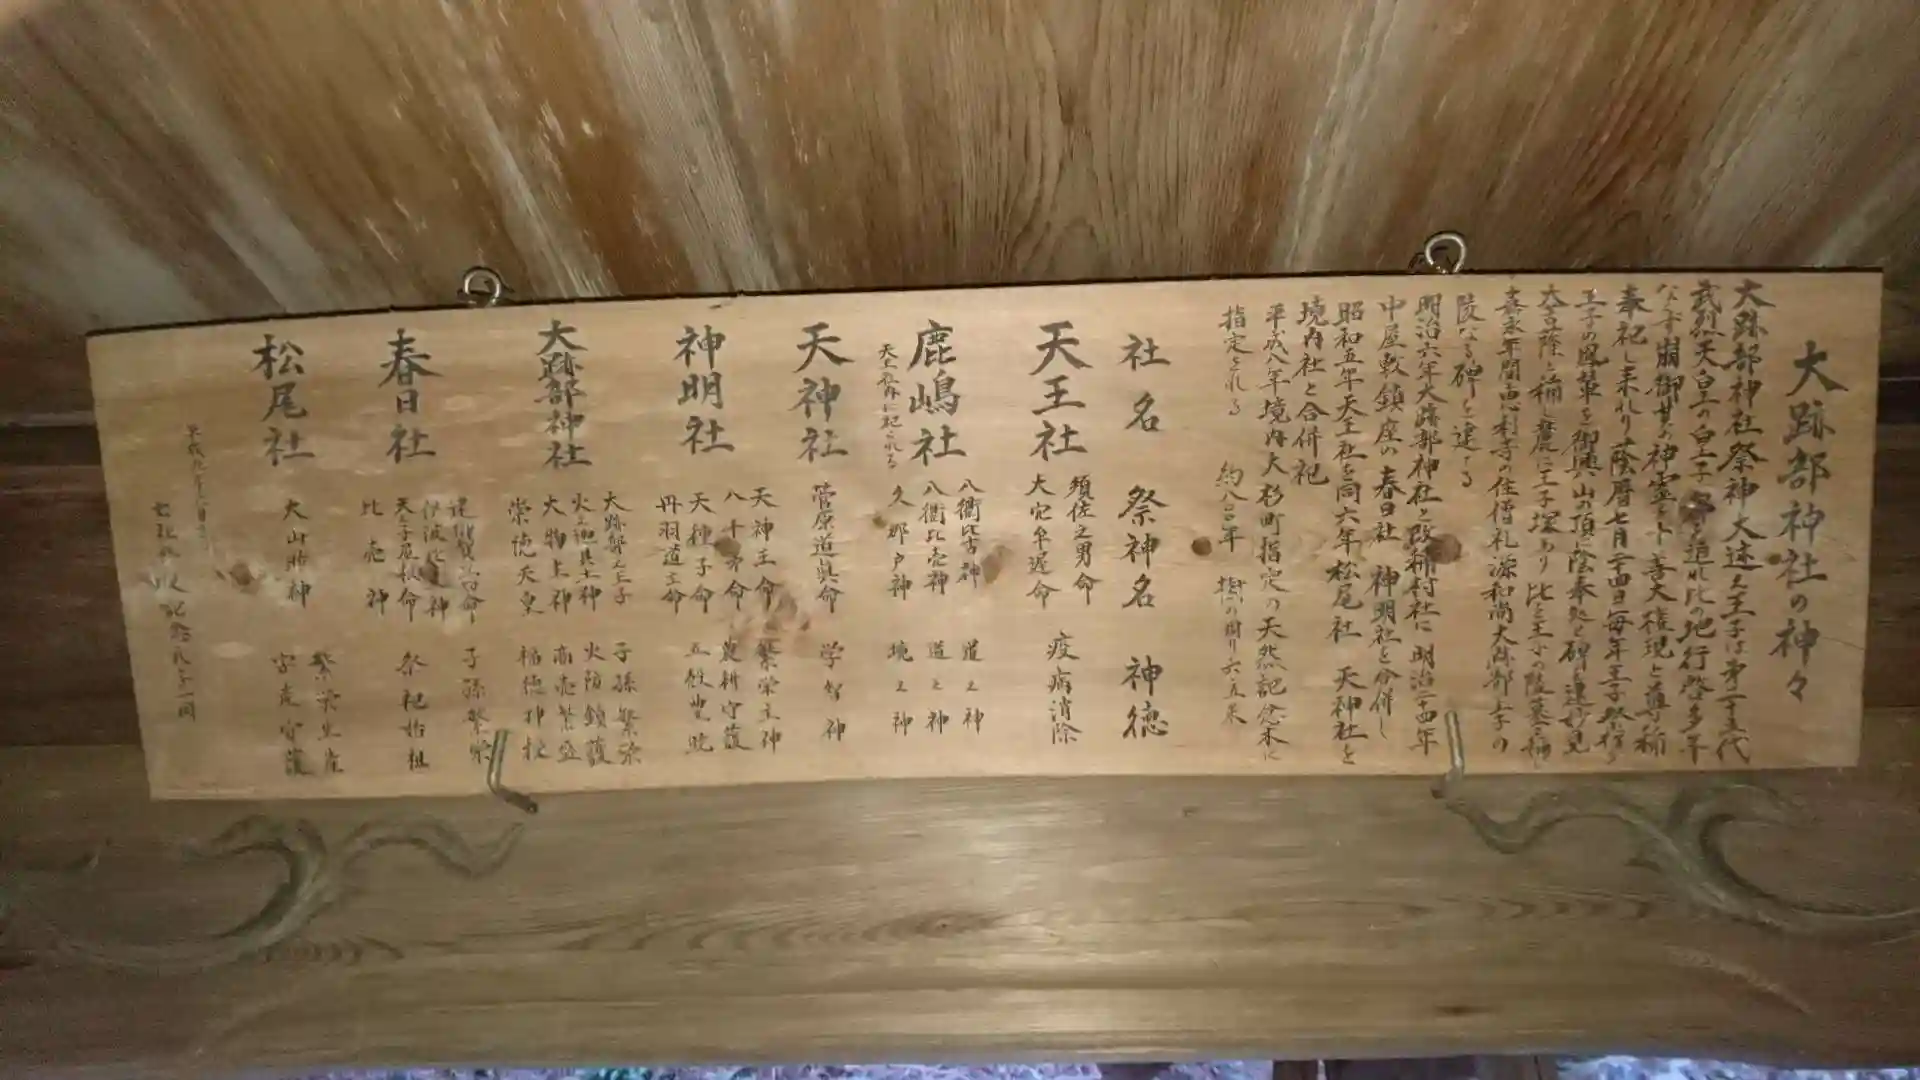 大跡部神社の神々
大跡部神社祭神大迹之王子は第二十五代
武烈天皇の皇子 道れ比の地行啓多年
ならず崩御其の神霊を十善大権現と尊稱
奉祀し来れり蔭暦七月二十四日毎年王子祭を
王子の鳳輦を御興山の頂に蔭奉
大古蔭と稱し麓に王子塚あり 比を王子の陵墓と稱
嘉永年間恵利寺の住僧礼源和尚大跡部王子の
陵なる碑を建する
明治六年大跡部神社と改稱村社に 明治二十四年
中屋敷鎮座の春日社 神明社を合併し
昭和五年天王社を同六年松尾社 天神社を
境内社と合併祀
平成八年境内大杉町指定の天然記念木に
指定される 約八百年 樹の周り六、五米
社名 祭神名 神徳
天王社 須佐之男命 疫病消除
大穴牟遅命
鹿嶋社 八衢比古神 道之神
八衢比売神 道之神
久那戸神 境之神
天王祭殿に祀られる
天神社 菅原道眞命 学智神
神明社 天神王命 繁栄主神
八十万命 農耕守護
天種子命 五穀豊眺
丹羽道主命
大跡部神社 大跡部之王子 子孫繁栄
火之迦具土神 火防鎮護
大物主神 商売繁盛
崇徳天皇 福徳神授
春日社 建御賀豆智命 子孫繁栄
伊波比主神 祭祀始祖
天之子屋根命
比売神
松尾社 大山咋神 繁栄生産
家産守護
平成九年